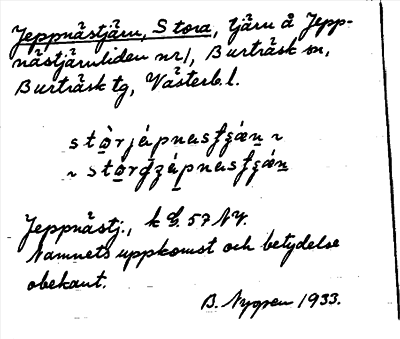 Jeppnästjärn, Stora, tjärn å Jepp-
nästjärnliden nr 1, Burträsk sn,
Burträsk tg, Västerb. l.
Jeppnästj., k 57 NV.
Namnets uppkomst och betydelse
obekant.
B. Nygren 1933.